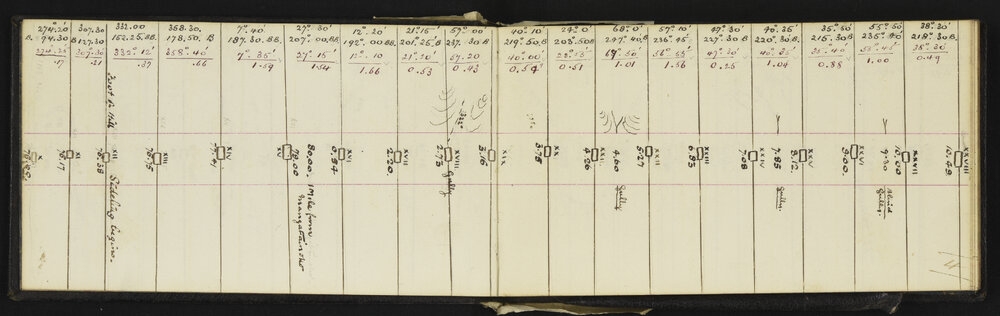 274.20
B. 94.30
274.25
.17
307.30
B 127.30
307.30
.21
332.00
152.25.BB.
332° 12'
.37
358.30.
178.50. B
358° 40'
.66
7°. 40.
187.30.BB.
7°. 35'
1.59
27°. 30'
207°.00.BB.
27°. 15'
1.54
12°. 20
192°. 00.BB.
12°. 10
1.66
21°. 15'
201°. 25'.B
21°. 20
0.53
57°. 00
237. 30.B
57.20
0.43
40°. 10'
219°.50.B
40°. 00'
0.54
0.51
68°. 0'
247°. 40'.B
1.01
57°. 10
236°. 45'
56° 55'
1.56
47°. 30
227°. 30 B
47°. 30
0.25
40. 35'
220°. 30'.B.
1.04
35°. 50'
215. 30.B
35°. 40
0.88
55°. 50'
1.00
38°. 30'
218°.30'B
0.49
Foot of Hill
X
XI
76.17
XII
76.38
Sideling begins.
XIII
76.75
XIV
XV
79.00
80.00. 1 Mile from
XVI
0.54
XVII
2.20
XVIII
2.73
Gully
3.16
XIX
XX
3.75
XXI
4.26
4.60
Gully
XXII
5.27
6.83
XXIV
7.08
7.85
Gully.
XXV
8.12.
XXVI
9.00.
9.30
Blind
Gully.
XXVII
10.00
XXVIII
10.49
4